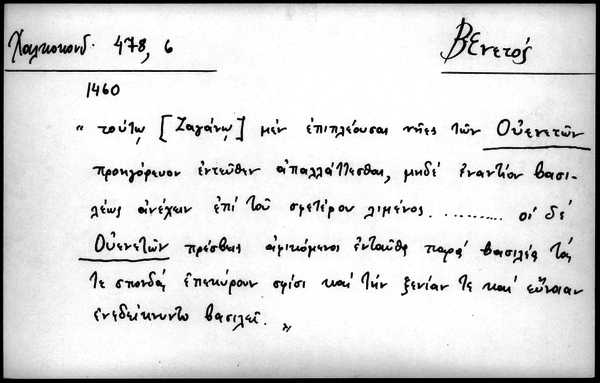 Χαλκοκονδ. 478, 6
Βενετός
1460
“ τούτῳ [Ζαγάνῳ] μέν ἐπιπλέουσαι νῆες τῶν Οὐενετῶν
προηγόρευον ἐντεῦθεν ἀπαλλάττεσθαι, μηδέ ἐναντίον βασι-
λέως ἀνέχων ἐπί τοῦ σφετέρου λιμένος........... οἱ δέ
Οὐενετῶν πρέσβεις ἀφικόμενοι ἐνταῦθα παρά βασιλέα τάς
τε σπονδάς ἐπεκύρουν σφίσι καί τήν ξενίαν τε καί εὔνοιαν
ἐνεδείκνυντο βασιλεῖ. „